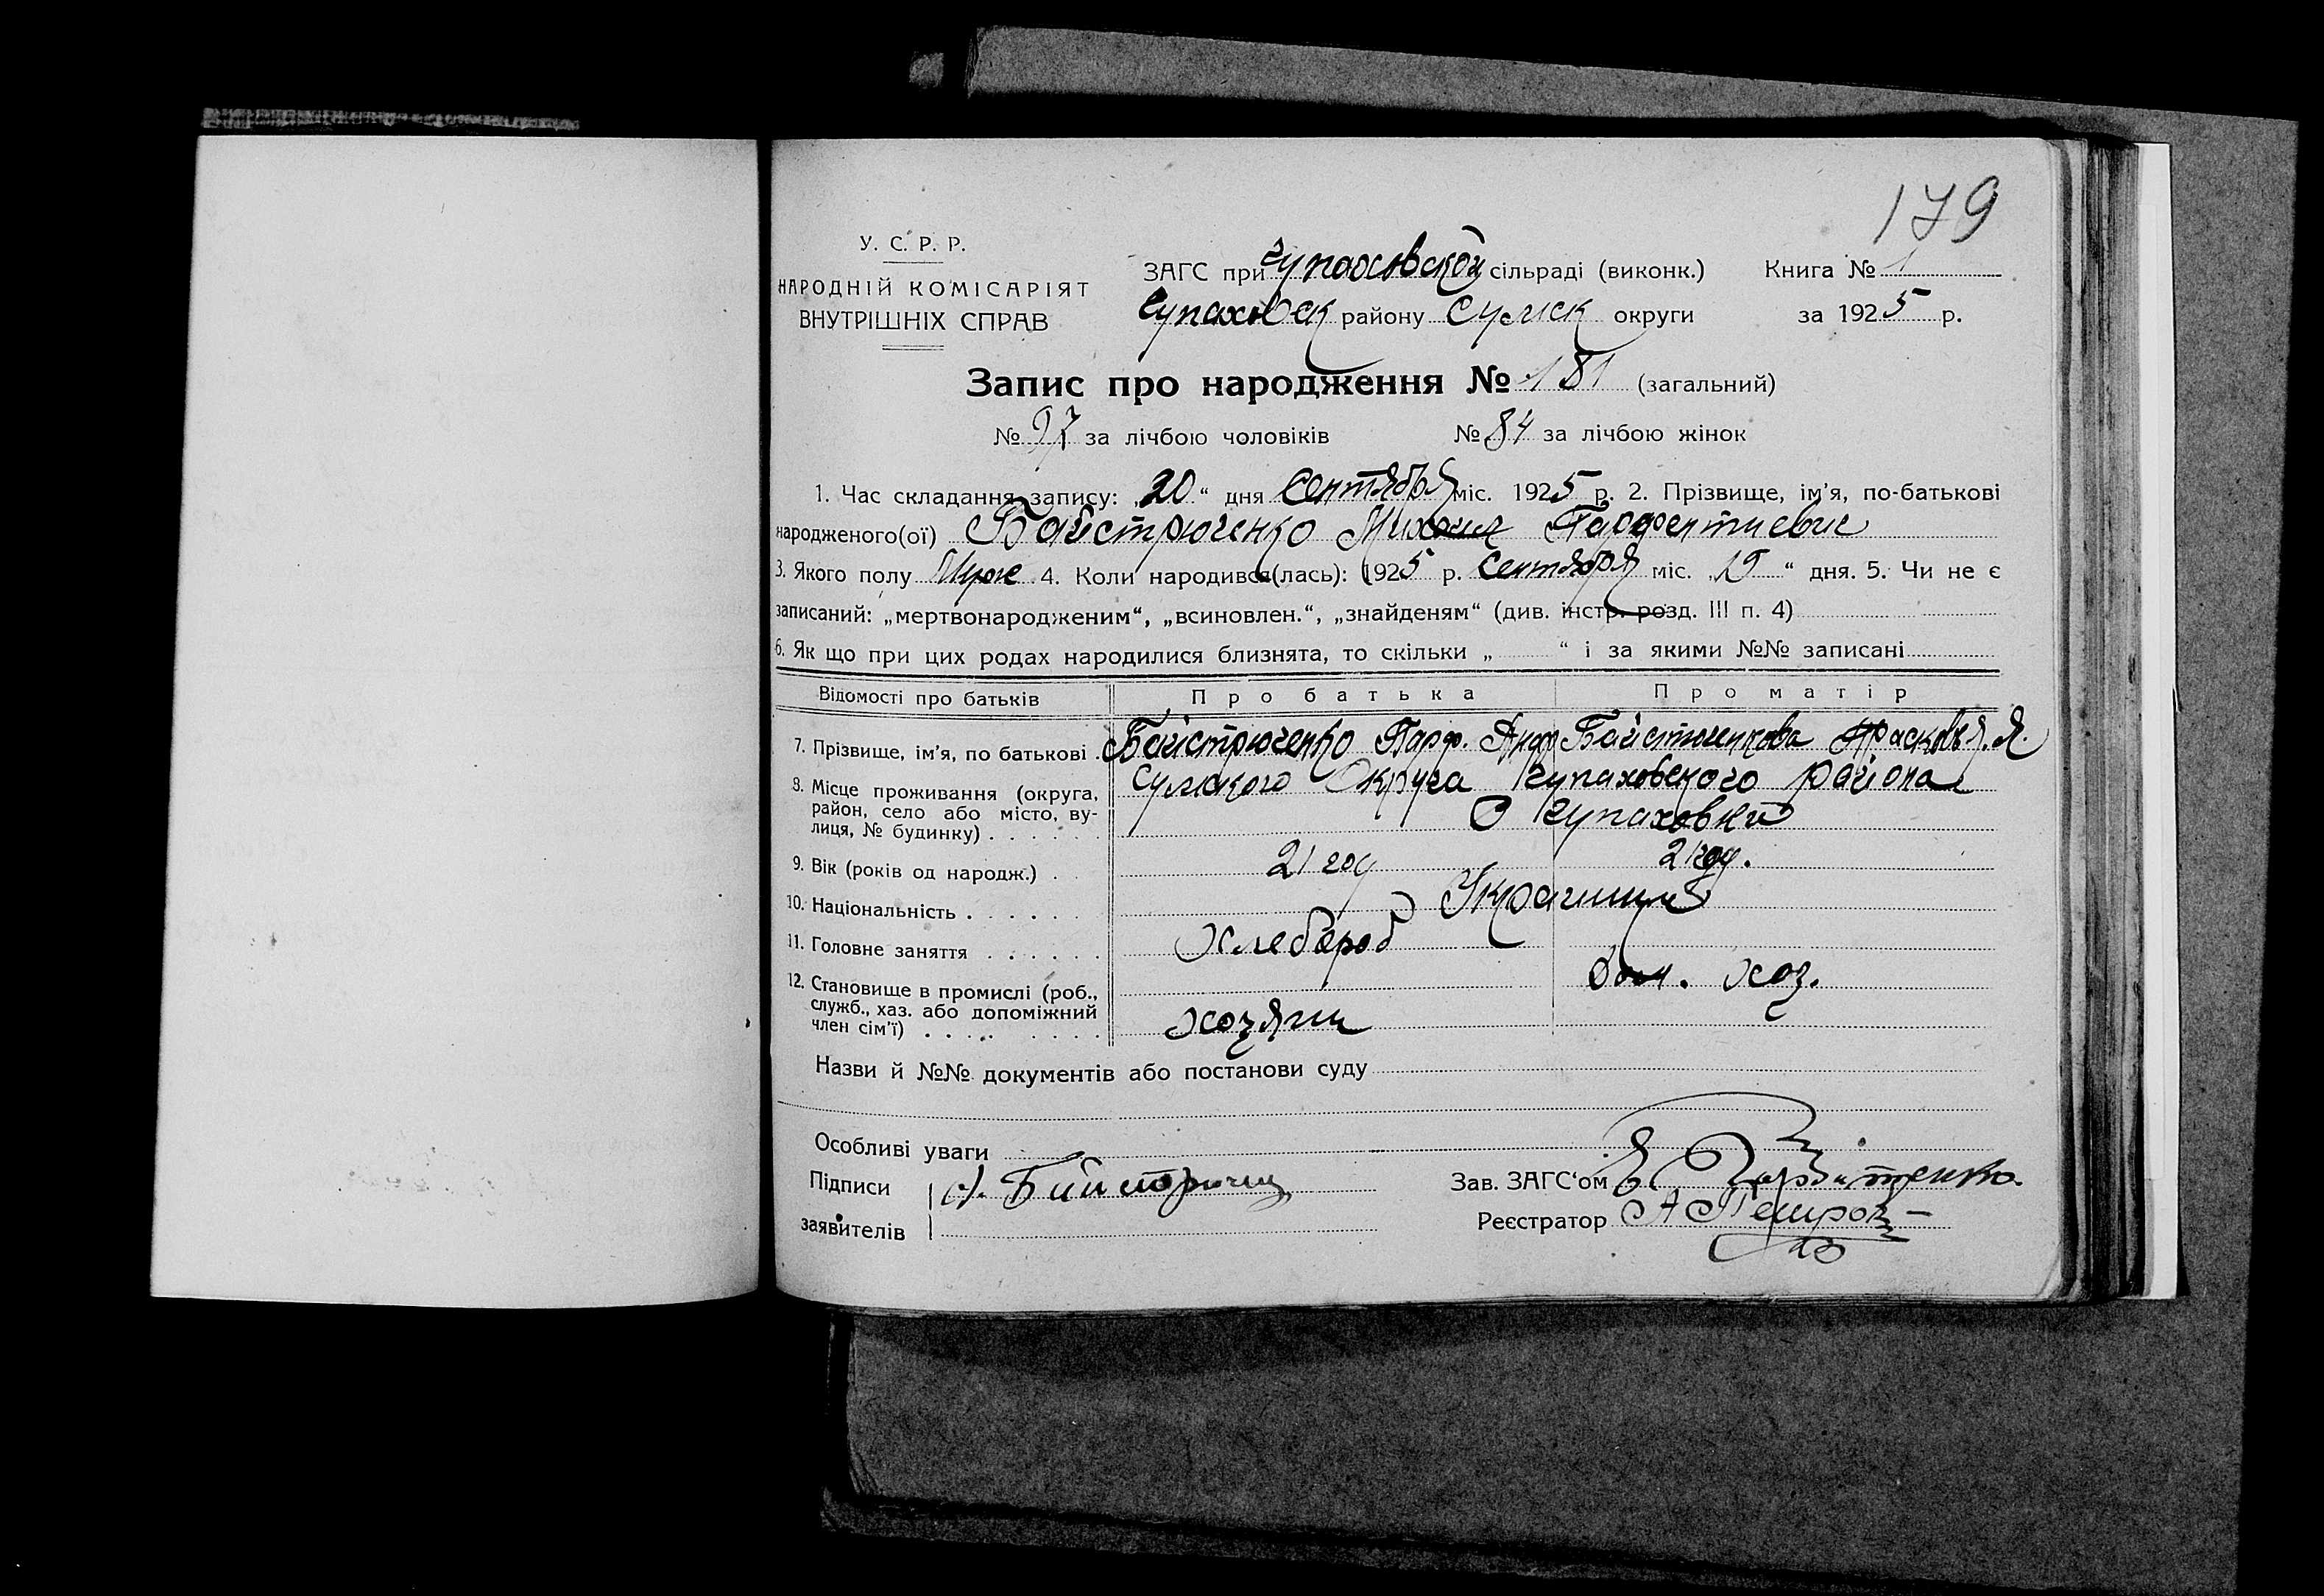 179
У. С. Р. Р.
НАРОДНІЙ КОМІСАРІЯТ
ВНУТРІШНІХ СПРАВ
ЗАГС при Чупаховской сільраді (виконк.) Книга № 1
Чупаховск району Сумск округи за 1925 р.
Запис про народження № 181 (загальний)
№ 97 за лічбою чоловіків № 84 за лічбою жінок
1. Час складання запису: „20“ дня Сентября міс. 1925 р. 2. Прізвище, ім’я, по-батькові
народженого(ої) Байстрюченко Михаил Парфентиевич
3. Якого полу Муж 4. Коли народився(лась): 1925 р. Сентября міс. „19“ дня. 5. Чи не є
записаний: „мертвонародженим“, „всиновлен.“, „знайденям“ (див. інстр. розд. III п. 4)
6. Як що при цих родах народилися близнята, то скільки „ “ і за якими №№ записані
Відомості про батьків Про батька Про матір
7. Прізвище, ім’я, по батькові . Байстрюченко Парф. Андр Прасковья. Я.
8. Місце проживання (округа, Сумского Округа Чупаховского района
район, село або місто, ву-
лиця, № будинку) . . . . . . С Чупаховки
9. Вік (років од народж.) . . 21 год 21 год.
10. Національність . . . . . . Украинцы
11. Головне заняття . . . . . . хлебороб
12. Становище в промислі (роб., дом. хоз.
служб., хаз. або допоміжний
член сім’ї) . . . . . . . . хозяин
Назви й №№ документів або постанови суду
Особливі уваги
Підписи
Зав. ЗАГС‘ом
заявителів
Реєстратор